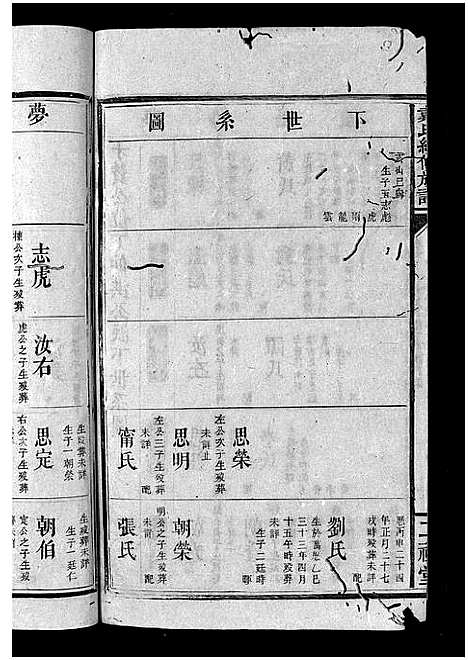 下世系圖
生子五志彪
虎 雨 龍 雲
思榮
左公次子生歿葬
未詳
思明
左公三子生歿葬
未詳 配
甯氏
年正月二十七
戌時歿葬未詳
劉氏
生於萬曆乙巳
三十三年四月
十五午時歿葬
未詳
生子二廷時
朝榮
明公之子生歿葬
未詳 配
張氏
夢
志虎
棟公次子生歿葬
汝右
虎公之子生歿葬
生歿葬未詳
生子一朝榮
思定
右公次子生歿葬
生歿葬未詳
生子二廷仁
朝伯
定公之子生歿葬